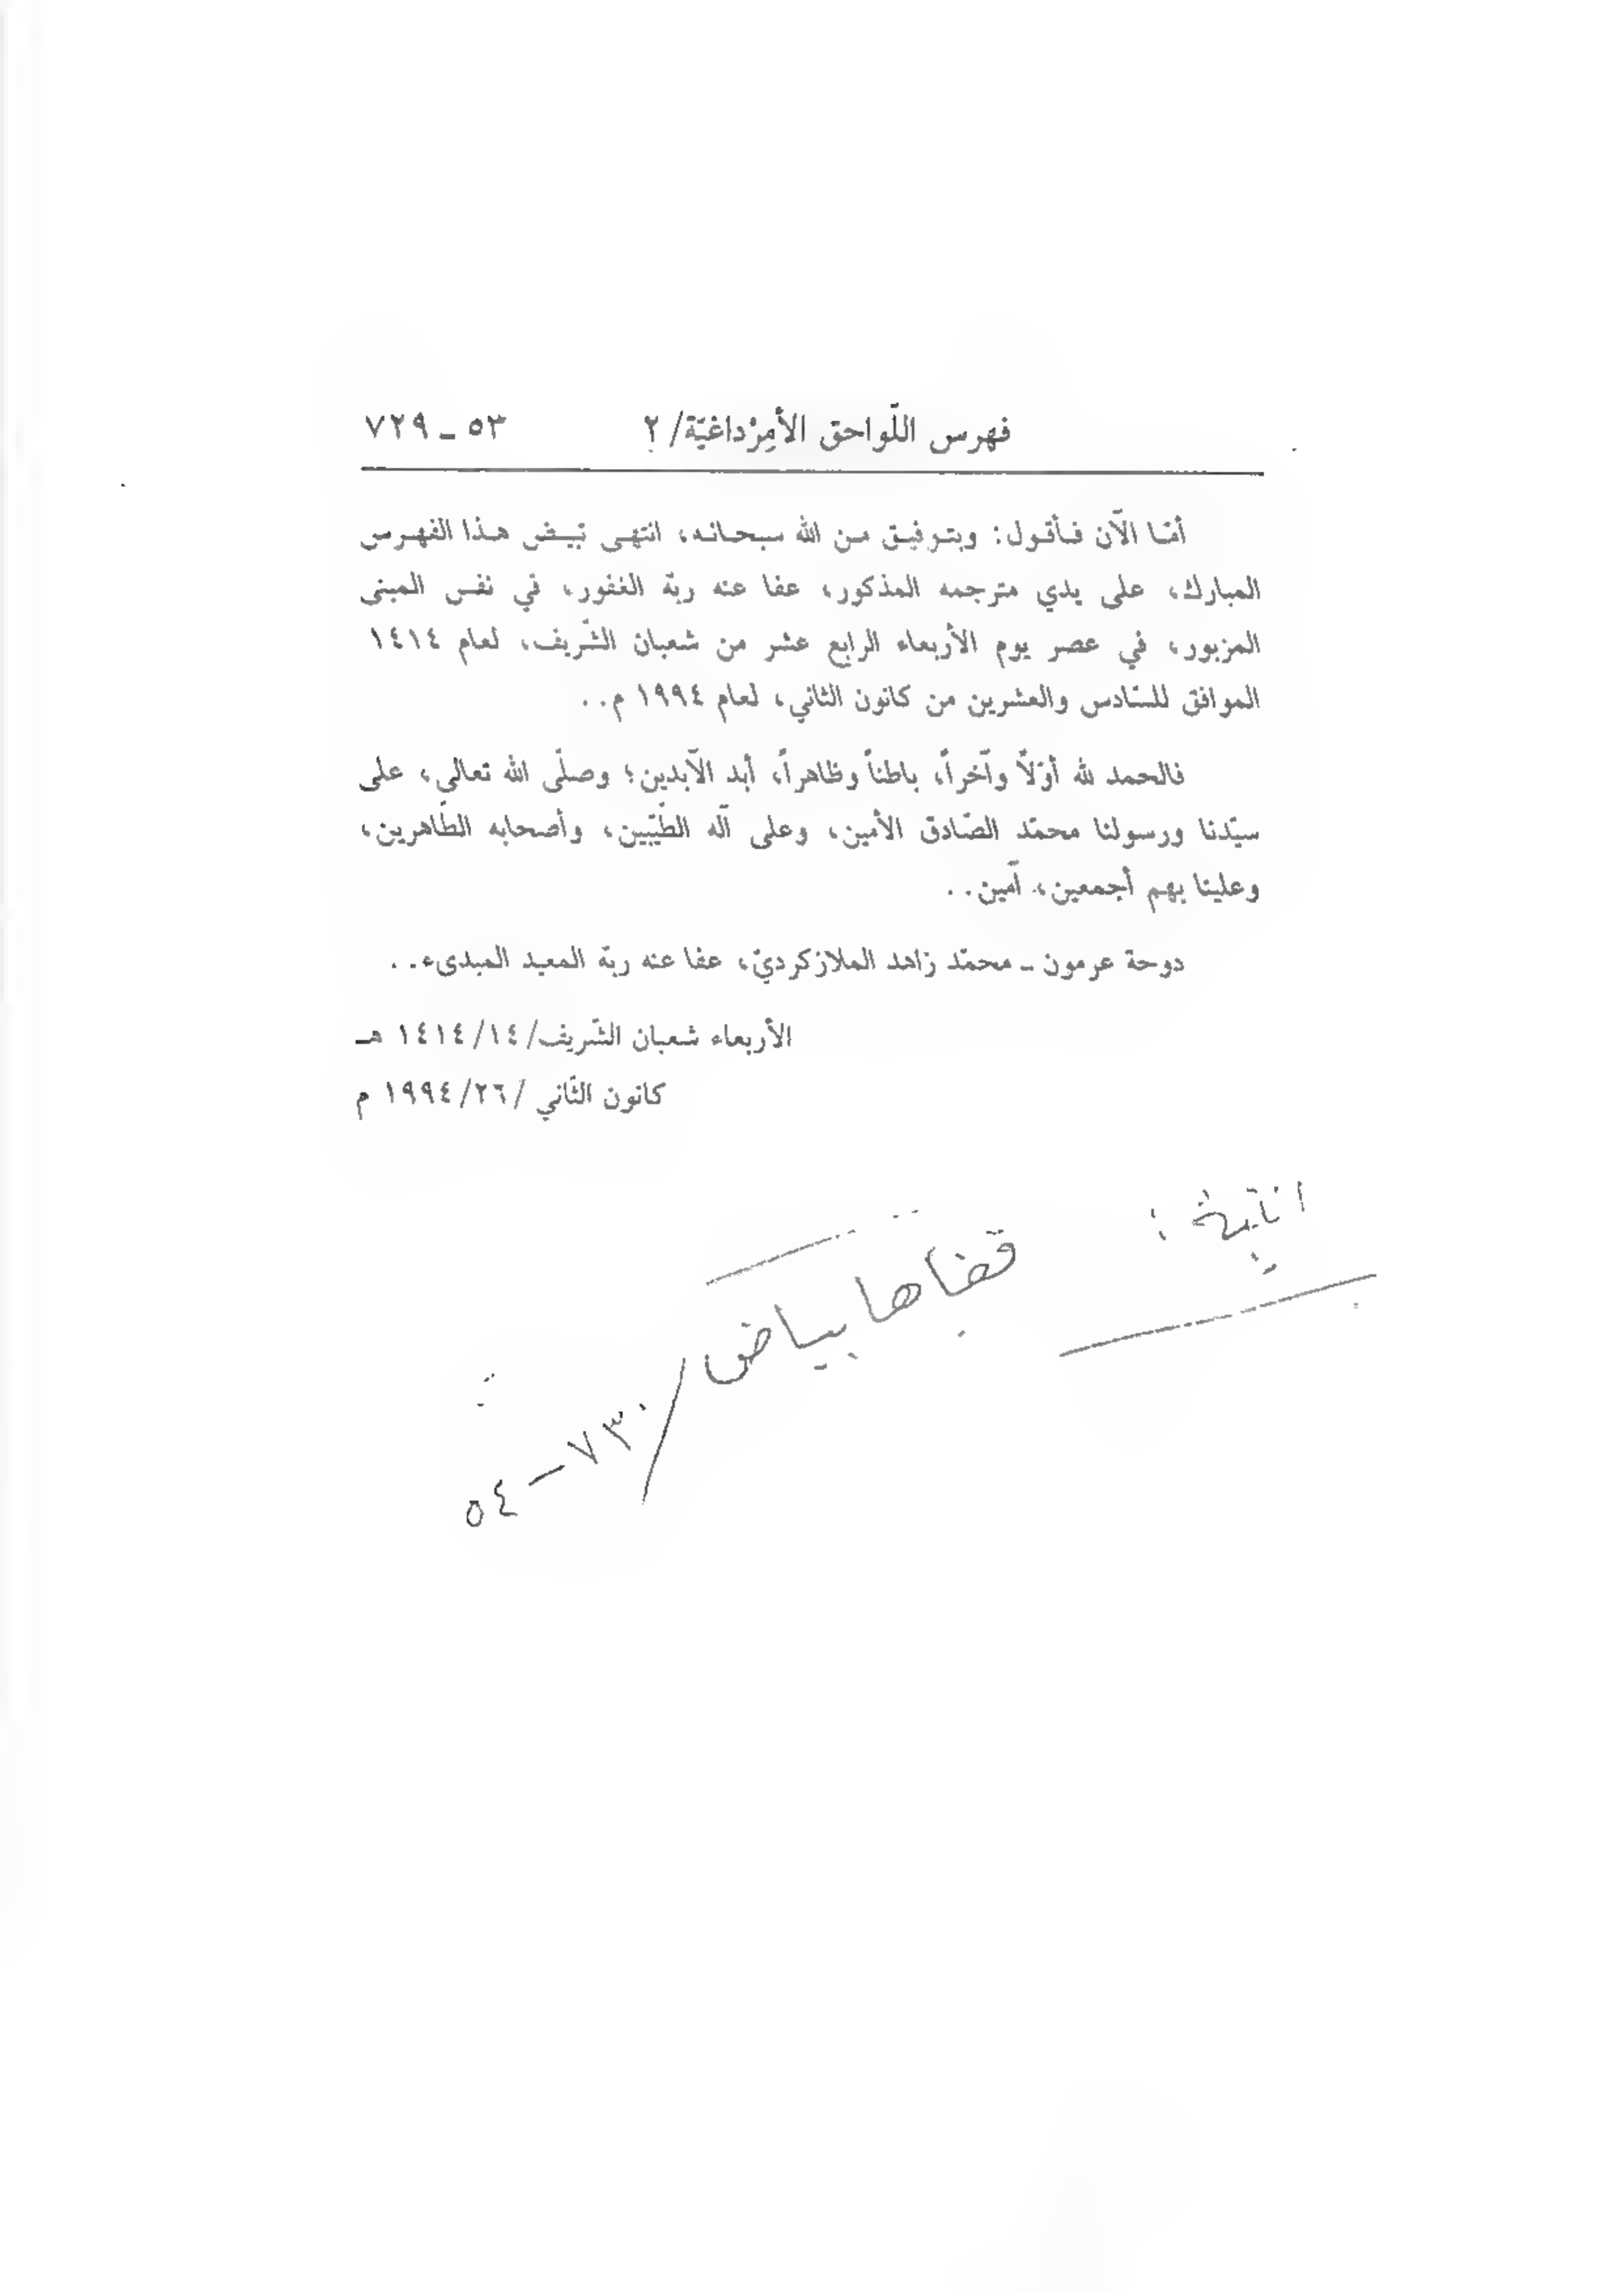 فهرس اللّواحق الأمِرْداغيّة/ ٢ ٥٣ ـ ٧٢٩
أمّا الآن فأقول: وبتوفيق من الله سبحانه، انتهى تبييض هذا الفهرس
المبارك، على يدي مترجمه المذكور، عفا عنه ربّه الغفور، في نفس المبنى
المزبور، في عصر يوم الأربعاء الرابع عشر من شعبان الشّريف، لعام ١٤١٤
الموافق للسّادس والعشرين من كانون الثاني، لعام ١٩٩٤ م..
فالحمد لله أوّلاً وآخراً، باطناً وظاهراً، أبد الآبدين؛ وصلّى الله تعالى، على
سيّدنا ورسولنا محمّد الصّادق الأمين، وعلى آله الطّيّبين، وأصحابه الطّاهرين،
وعلينا بهم أجمعين، آمين..
دوحة عرمون ـ محمّد زاهد الملازكرديّ، عفا عنه ربّه المعيد المبدىء..
الأربعاء شعبان الشّريف/١٤/ ١٤١٤ هـ
كانون الثّاني /٢٦/ ١٩٩٤ م
قفاها بياض/
٧٣٠ – ٥٤